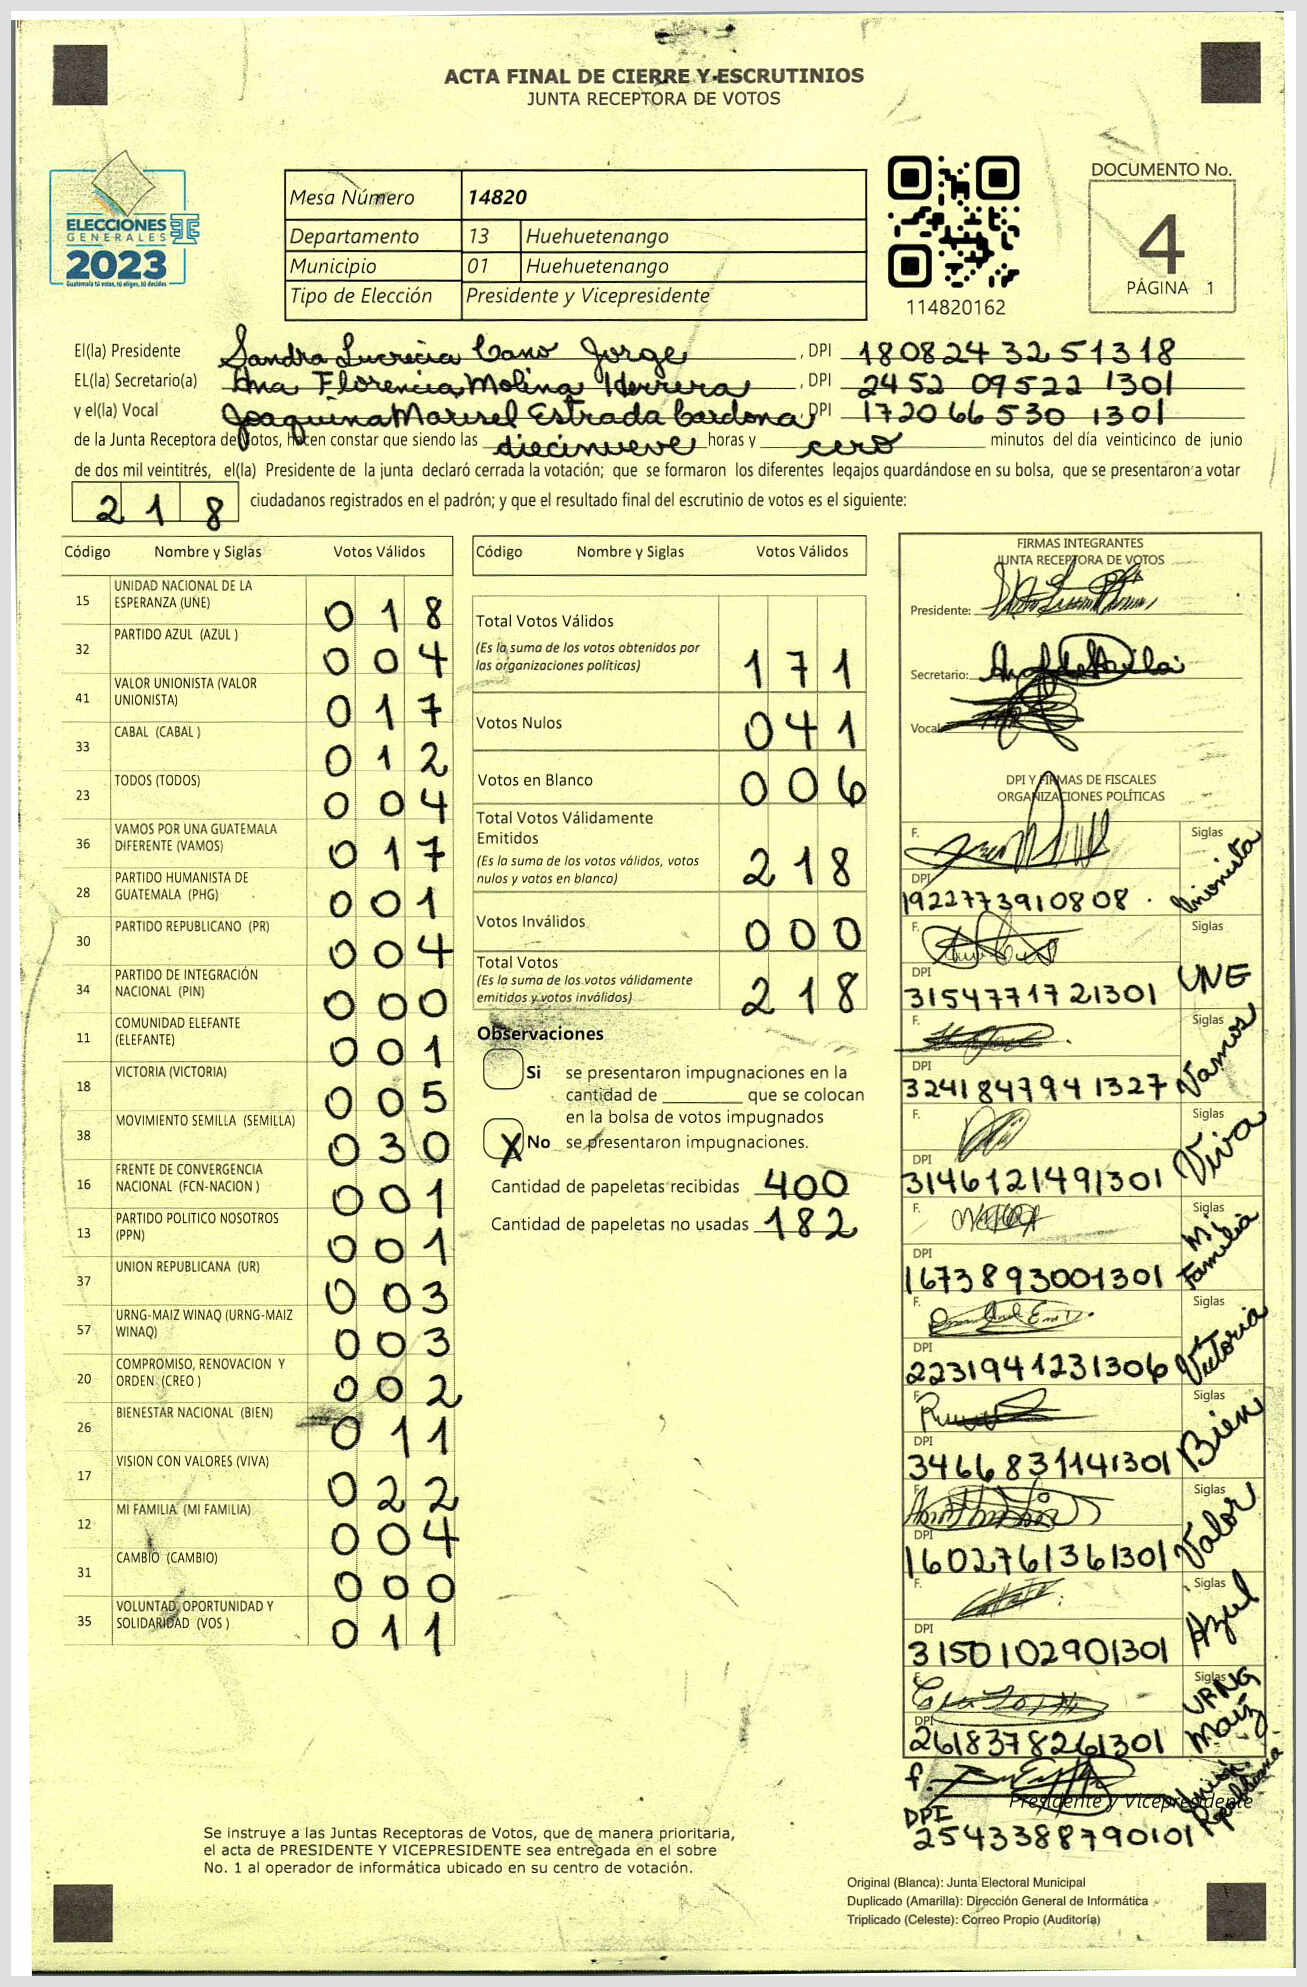 ACTA FINAL DE CIERRE Y ESCRUTINIOS
JUNTA RECEPTORA DE VOTOS
ELECCIONES
GENERALES
2023
Guatemala tú votas, tú eliges, tú decides
Mesa Número 14820
Departamento 13 Huehuetenango
Municipio 01 Huehuetenango
Tipo de Elección Presidente y Vicepresidente
114820162
DOCUMENTO No.
4
PÁGINA 1
El(la) Presidente Sandra Lucrecia Cano Jorge, DPI 1808243251318
EL(la) Secretario(a) Ana Florencia Molina Herrera, DPI 2452 09522 1301
y el(la) Vocal Joaquina Marisel Estrada Cardona, DPI 172066530 1301
de la Junta Receptora de Votos, hacen constar que siendo las diecinueve horas y cero minutos del día veinticinco de junio
de dos mil veintitrés, el(la) Presidente de la junta declaró cerrada la votación; que se formaron los diferentes legajos guardándose en su bolsa, que se presentaron a votar
218 ciudadanos registrados en el padrón; y que el resultado final del escrutinio de votos es el siguiente:
Código Nombre y Siglas Votos Válidos
15 UNIDAD NACIONAL DE LA ESPERANZA (UNE) 018
32 PARTIDO AZUL (AZUL ) 004
41 VALOR UNIONISTA (VALOR UNIONISTA) 017
33 CABAL (CABAL ) 012
23 TODOS (TODOS) 004
36 VAMOS POR UNA GUATEMALA DIFERENTE (VAMOS) 017
28 PARTIDO HUMANISTA DE GUATEMALA (PHG) 001
30 PARTIDO REPUBLICANO (PR) 004
34 PARTIDO DE INTEGRACIÓN NACIONAL (PIN) 000
11 COMUNIDAD ELEFANTE (ELEFANTE) 001
18 VICTORIA (VICTORIA) 005
38 MOVIMIENTO SEMILLA (SEMILLA) 030
16 FRENTE DE CONVERGENCIA NACIONAL (FCN-NACION ) 001
13 PARTIDO POLITICO NOSOTROS (PPN) 001
37 UNION REPUBLICANA (UR) 003
57 URNG-MAIZ WINAQ (URNG-MAIZ WINAQ) 003
20 COMPROMISO, RENOVACION Y ORDEN (CREO ) 002
26 BIENESTAR NACIONAL (BIEN) 011
17 VISION CON VALORES (VIVA) 022
12 MI FAMILIA (MI FAMILIA) 004
31 CAMBIO (CAMBIO) 000
35 VOLUNTAD, OPORTUNIDAD Y SOLIDARIDAD (VOS ) 011
Código Nombre y Siglas Votos Válidos
Total Votos Válidos
(Es la suma de los votos obtenidos por
las organizaciones políticas) 171
Votos Nulos 041
Votos en Blanco 006
Total Votos Válidamente
Emitidos
(Es la suma de los votos válidos, votos
nulos y votos en blanco) 218
Votos Inválidos 000
Total Votos
(Es la suma de los votos válidamente
emitidos y votos inválidos) 218
Observaciones
Si se presentaron impugnaciones en la
cantidad de ________ que se colocan
en la bolsa de votos impugnados
X No se presentaron impugnaciones.
Cantidad de papeletas recibidas 400
Cantidad de papeletas no usadas 182
FIRMAS INTEGRANTES
JUNTA RECEPTORA DE VOTOS
Presidente:
Secretario:
Vocal
DPI Y FIRMAS DE FISCALES
ORGANIZACIONES POLÍTICAS
F. Siglas
DPI 1922773910808 Unionista
F. Siglas
DPI 3154771721301 UNE
F. Siglas
DPI 3241847941327 Vamos
F. Siglas
DPI 3146121491301 Viva
F. Siglas
DPI 1673893001301 Mi Familia
F. Siglas
DPI 2231941231306 Victoria
F. Siglas
DPI 3466831141301 Bien
F. Siglas
DPI 1602761361301 Valor
F. Siglas
DPI 3150102901301 Azul
F. Siglas
DPI 2618378261301 URNG Maiz
f.
Presidente y Vicepresidente
DPI 2543388790101 Unión Republicana
Se instruye a las Juntas Receptoras de Votos, que de manera prioritaria,
el acta de PRESIDENTE Y VICEPRESIDENTE sea entregada en el sobre
No. 1 al operador de informática ubicado en su centro de votación.
Original (Blanca): Junta Electoral Municipal
Duplicado (Amarilla): Dirección General de Informática
Triplicado (Celeste): Correo Propio (Auditoría)